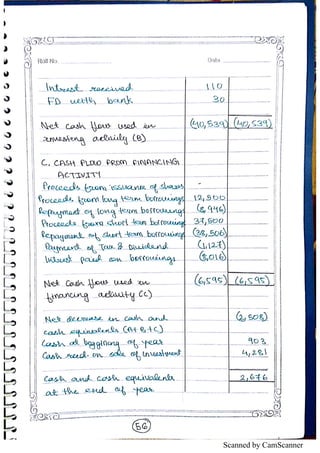 Roll No.
Date
Intrest received 110
FD with bank 30
Net cash flow used in (40,539) (40,539)
investing activity (B)
C. CASH FLOW FROM FINANCING
ACTIVITY
Proceeds from issuance of shares -
Proceeds from long term borrowings 12,800
Repayment of long term borrowings (8,946)
Proceeds from short term borrowing 37,500
Repayment of short term borrowing (38,506)
Payment of Tax & Dividend (1,127)
Intrest paid on borrowings (8,016)
Net Cash flow used in (6,595) (6,595)
financing activity (C)
Net decrease in cash and (2,508)
cash equivalents (A+B+C)
Cash at beggining of year 903
Cash recd. on sale of investment 4,281
Cash and cash equivalents 2,676
at the end of year
56
Scanned by CamScanner